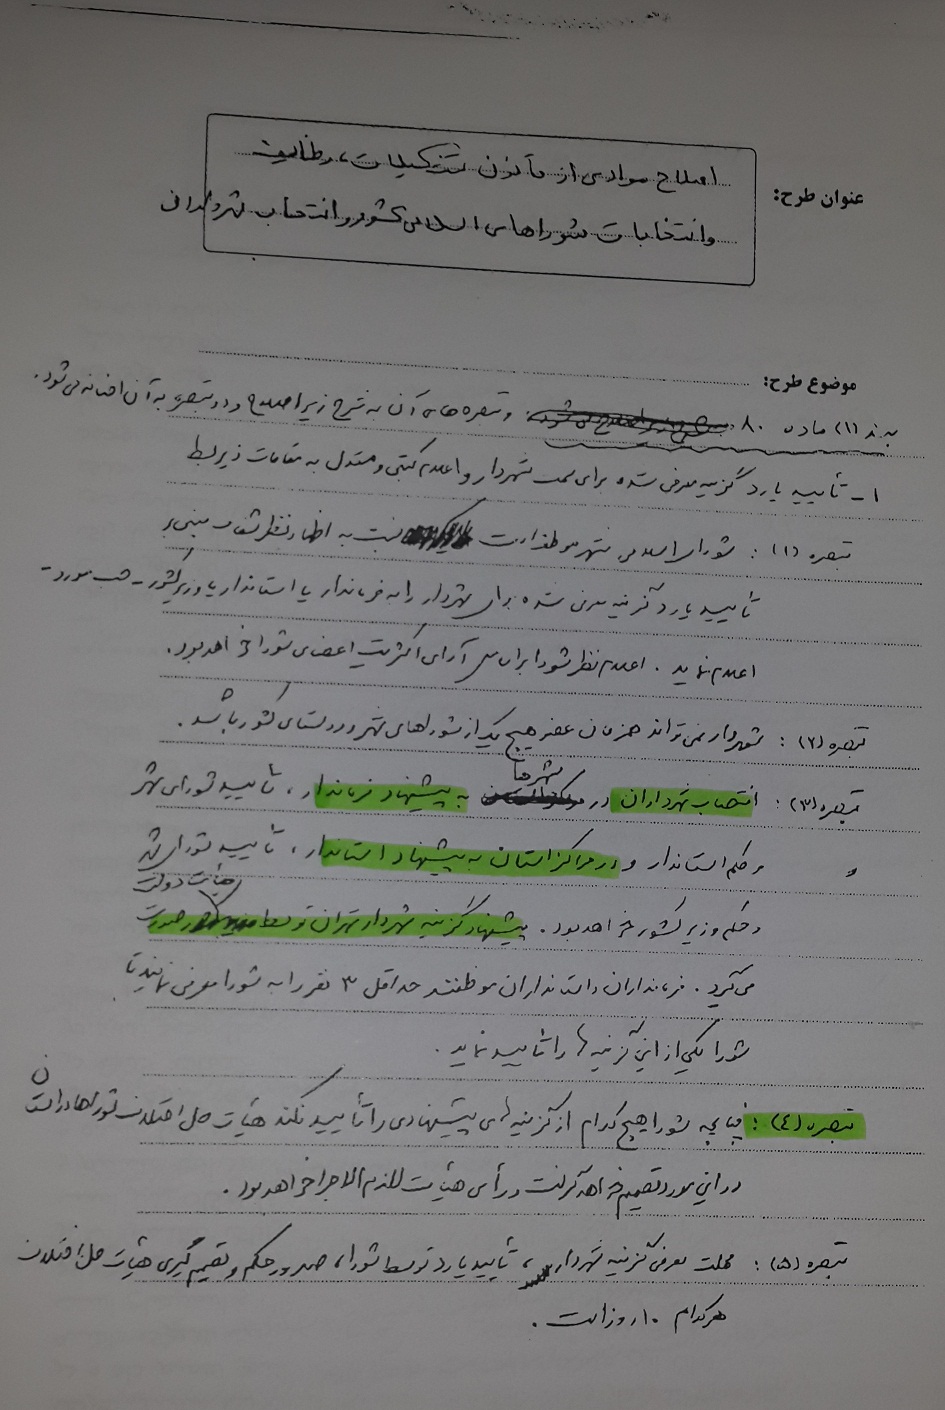 عنوان طرح:
اصلاح موادی از قانون تشکیلات، وظایف
و انتخابات شوراهای اسلامی کشور و انتخاب شهرداران
موضوع طرح:
بند (۱) ماده ۸۰ و تبصره های آن به شرح زیر اصلاح و دو تبصره به آن اضافه می شود.
۱- تأیید یا رد گزینه معرفی شده برای سمت شهردار و اعلام کتبی و مستدل به مقامات ذیربط
تبصره (۱): شورای اسلامی شهر موظف است نسبت به اظهار نظر شفاف مبنی بر
تأیید یا رد گزینه معرفی شده برای شهردار را به فرماندار یا استاندار یا وزیر کشور - حسب مورد -
اعلام نماید. اعلام نظر شورا براساس آرای اکثریت اعضای شورا خواهد بود.
تبصره (۲): شهردار نمی تواند همزمان عضو هیچ یک از شوراهای شهر و روستای کشور باشد.
تبصره (۳): انتصاب شهرداران در شهرها به پیشنهاد فرماندار، تأیید شورای شهر
و حکم استاندار و در مراکز استان به پیشنهاد استاندار، تأیید شورای شهر
و حکم وزیر کشور خواهد بود. پیشنهاد گزینه شهردار تهران توسط هیأت دولت صورت
می گیرد. فرمانداران و استانداران موظفند حداقل ۳ نفر را به شورا معرفی نمایند تا
شورا یکی از این گزینه ها را تأیید نماید.
تبصره (٤): چنانچه شورا هیچ کدام از گزینه های پیشنهادی را تأیید نکند هیأت حل اختلاف شوراها در استان
در این مورد تصمیم خواهد گرفت و رأی هیأت لازم الاجرا خواهد بود.
تبصره (۵): مهلت معرفی گزینه شهردار، تأیید یا رد توسط شورا، صدور حکم و تصمیم گیری هیأت حل اختلاف
هر کدام ۱۰ روز است.